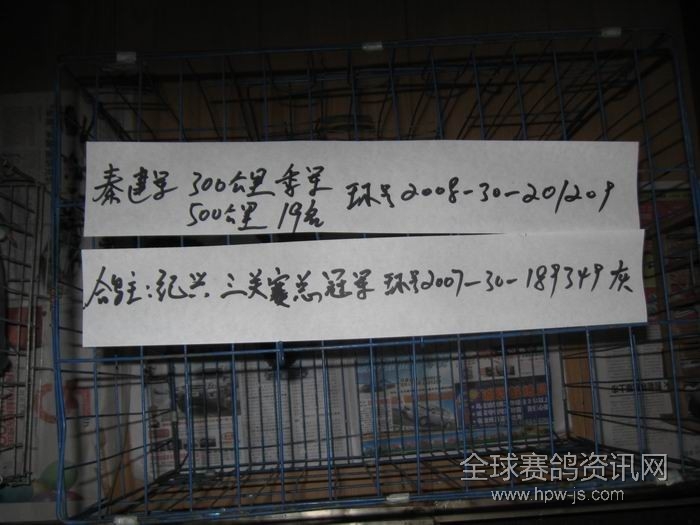 秦建军 300公里季军 环号2008-30-201209
500公里 19名
鸽主:纪兴 三关赛总冠军 环号2007-30-189349 灰
全球赛鸽资讯网
www.hpw-js.com